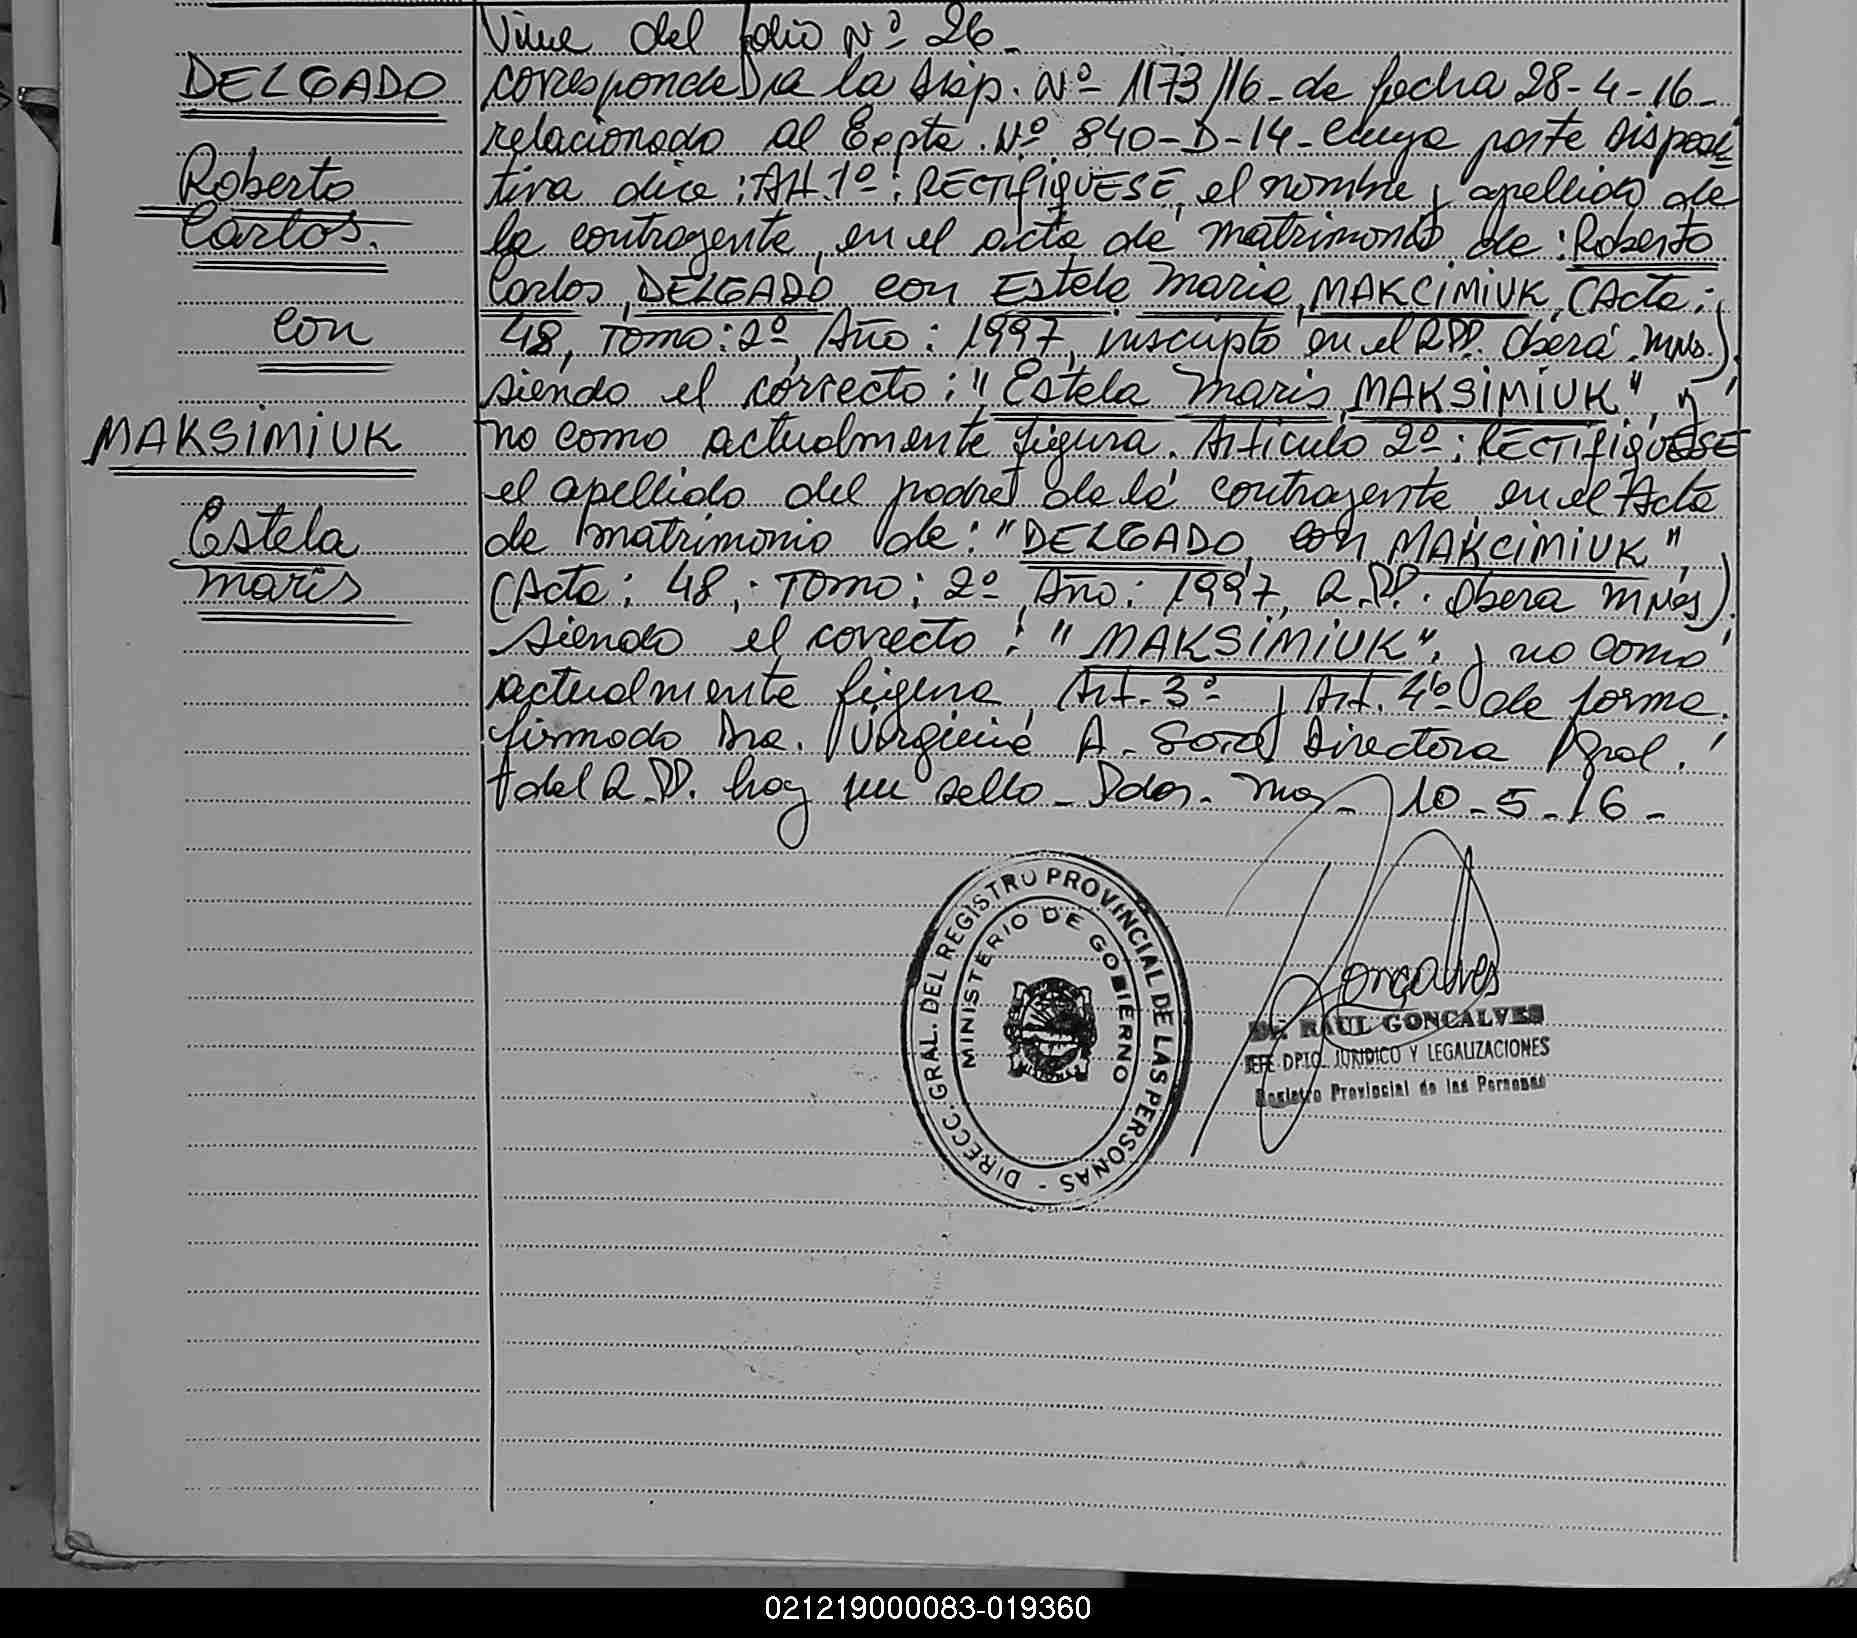 Vine del folio Nº 26-
DELGADO
Roberto
Carlos.
con
MAKSIMIUK
Estela
Maris
corresponde a la Disp. Nº 1173/16- de fecha 28-4-16-
relacionado al Expte. Nº 840-D-14- cuya parte disposi
tiva dice: Art. 1º: RECTIFIQUESE, el nombre y apellido de
la contrayente, en el acta de matrimonio de: Roberto
Carlos, DELGADO, con Estela Maria, MAKCIMIUK, (Acta:
48, Tomo: 2º, Año: 1997, inscripto en el R.P.P. Oberá Mns.),
siendo el correcto: "Estela Maris, MAKSIMIUK", y
no como actualmente figura. Articulo 2º: RECTIFIQUESE
el apellido del padre de la contrayente en el Acta
de matrimonio de: "DELGADO, con MAKCIMIUK",
(Acta: 48, Tomo: 2º, Año: 1997, R.P.P. Obera Mnes),
siendo el correcto: "MAKSIMIUK", y no como
actualmente figura, Art. 3º y Art. 4º de forma.
firmado Dra. Virginia A. Directora Gral.
del R.P.P. hay un sello- Pdas. Mns- 10-5-16-
DIRECC. GRAL. DEL REGISTRO PROVINCIAL DE LAS PERSONAS -
MINISTERIO DE GOBIERNO
Gonçalves
Dr. RAUL GONCALVES
JEFE DPTO. JURIDICO Y LEGALIZACIONES
Registro Provincial de las Personas
021219000083-019360